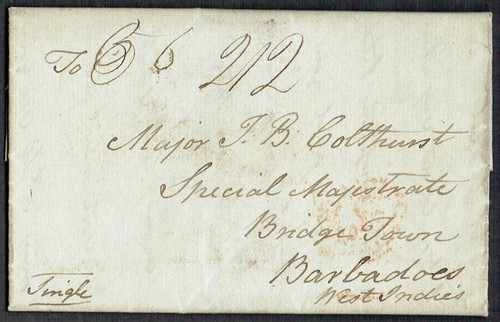 To 5 6 2/2
Major J. B. Colthurst
Special Majestrate
Bridge Town
Barbadoes
West Indies
Single